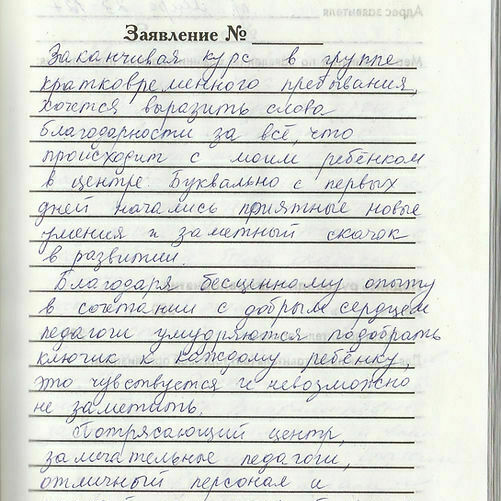 Адрес заявителя
Заявление №
Заканчивая курс в группе
кратковременного пребывания,
хочется выразить слова
благодарности за всё, что
происходит с моим ребёнком
в центре. Буквально с первых
дней начались приятные новые
умения и заметный скачок
в развитии.
Благодаря бесценному опыту
в сочетании с добрым сердцем
педагоги умудряются подобрать
ключик к каждому ребёнку,
это чувствуется и невозможно
не заметить.
Потрясающий центр,
замечательные педагоги,
отличный персонал и